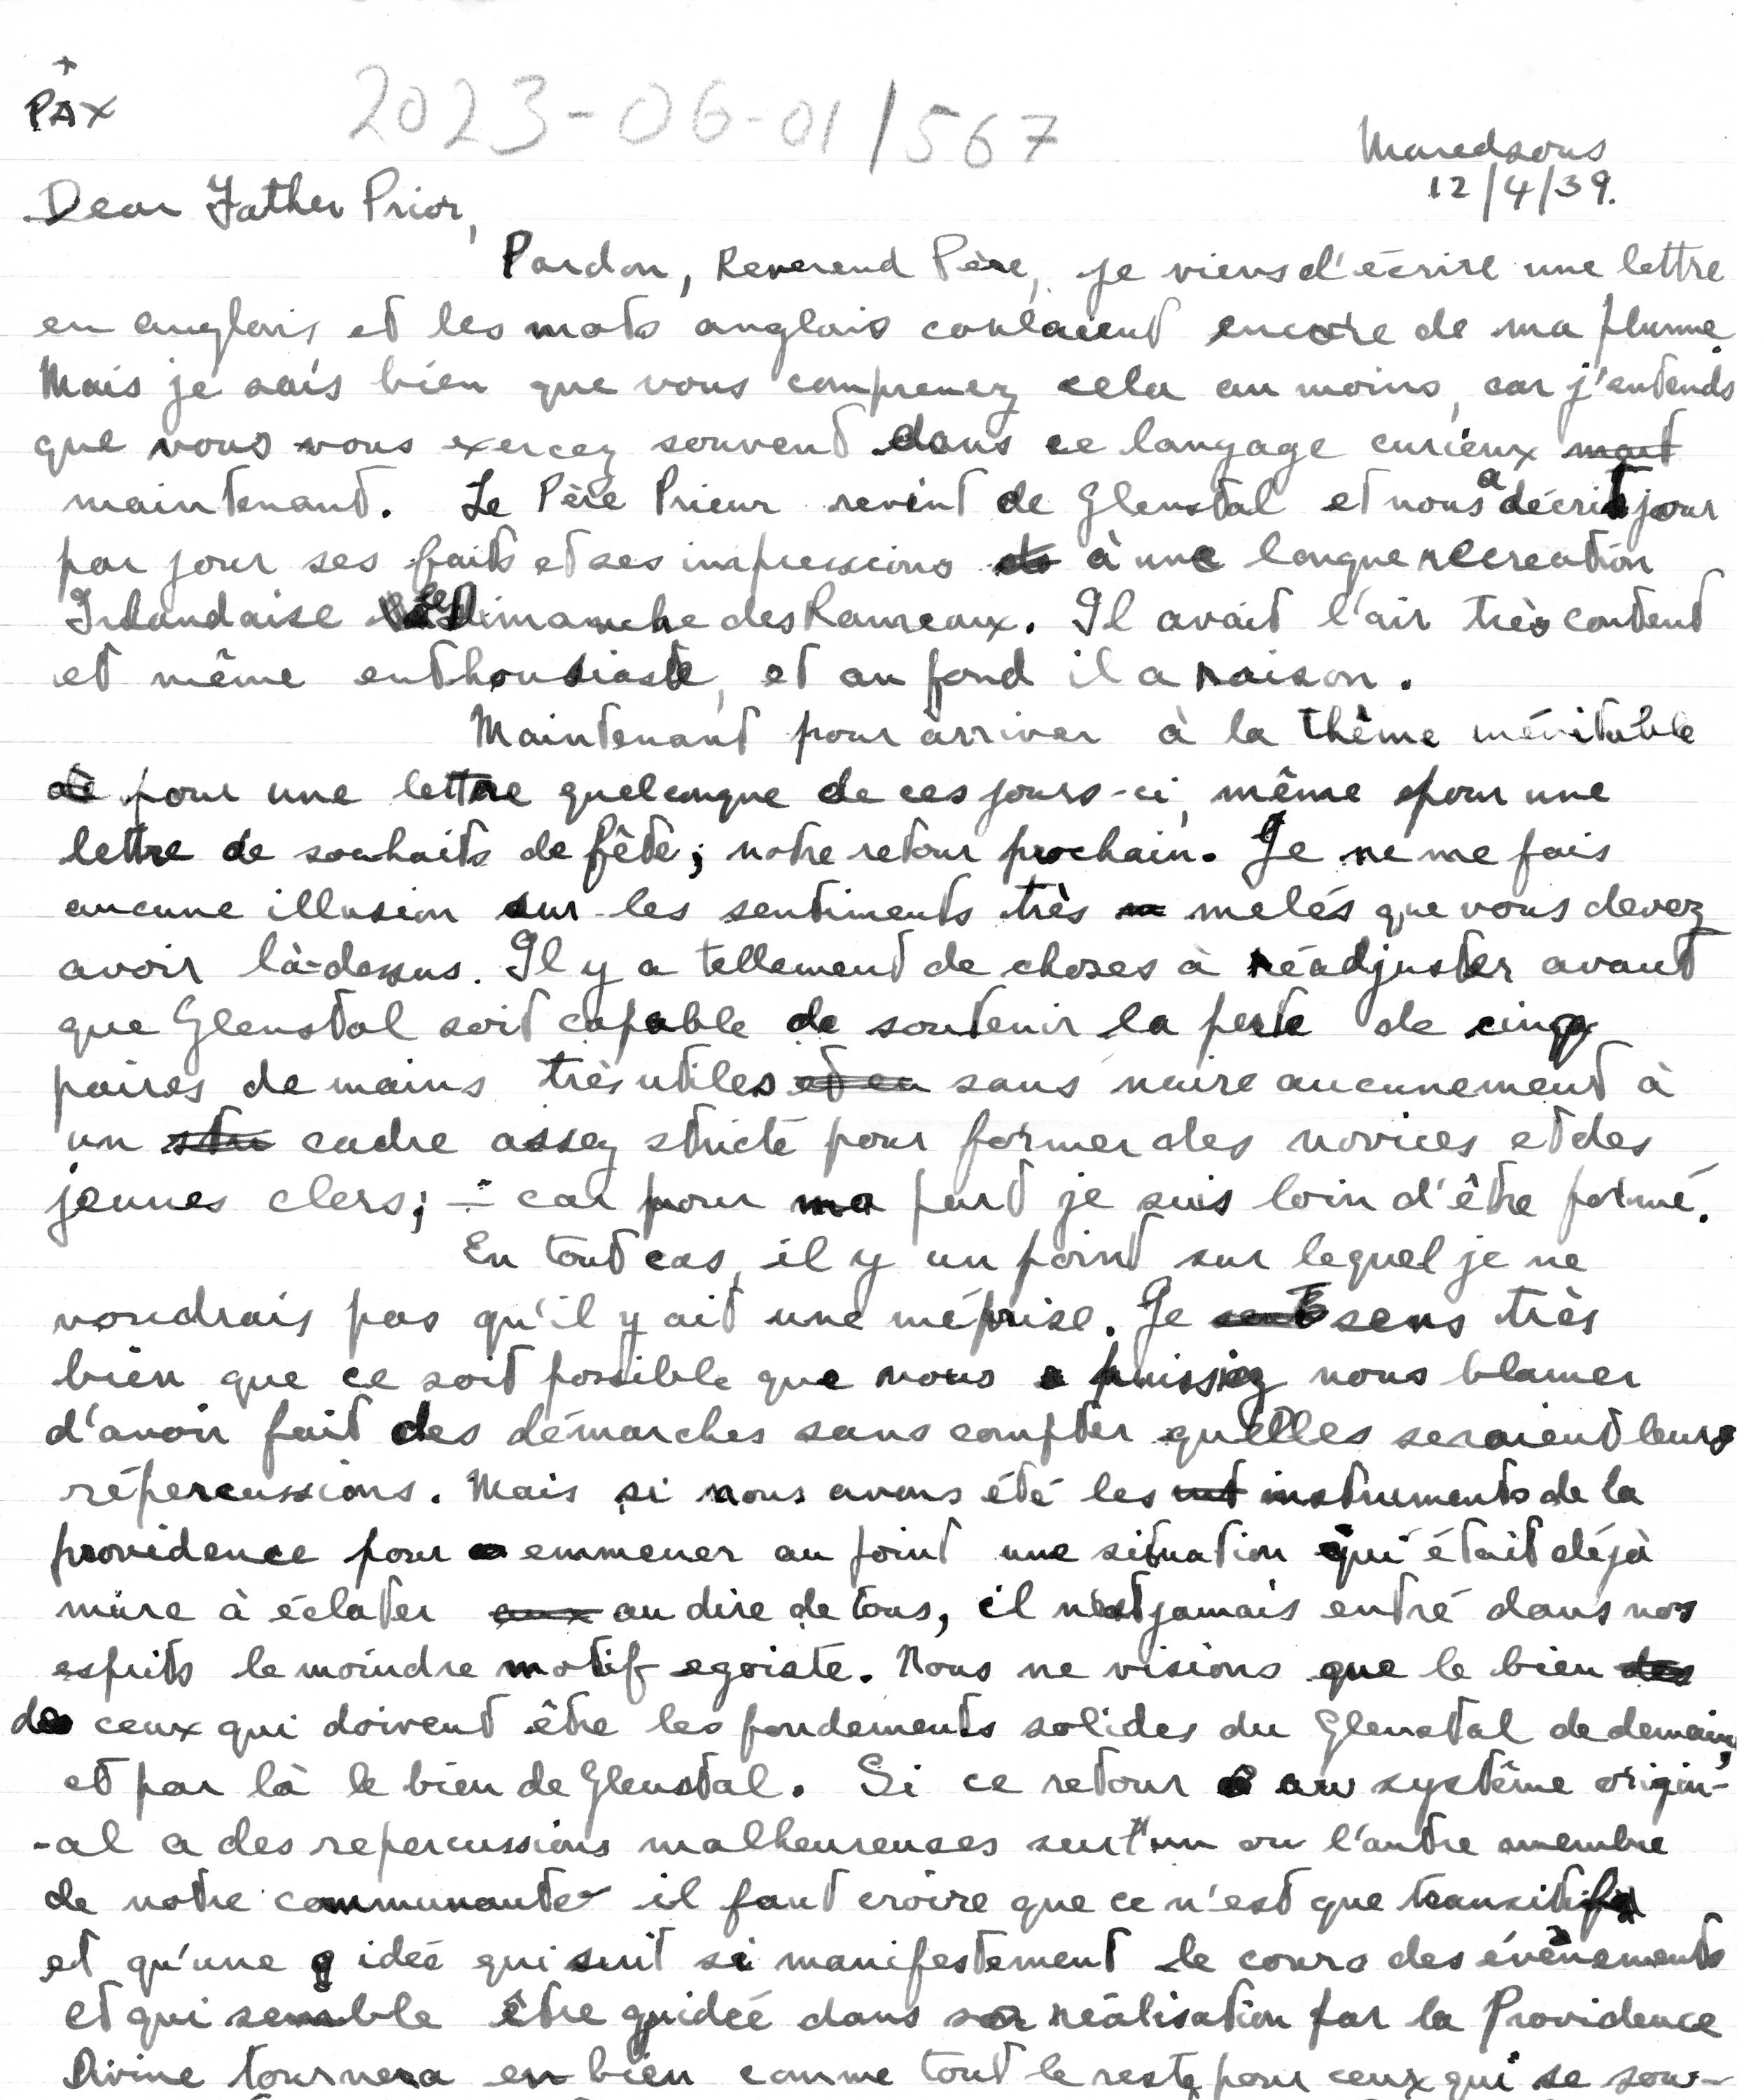 +
PAX
2023-06-01/567
Maredsous
12/4/39.
Dear Father Prior,
Pardon, Reverend Père, je viens d'écrire une lettre
en anglais et les mots anglais coulaient encore de ma plume.
Mais je sais bien que vous comprenez cela au moins, car j'entends
que vous vous exercez souvent dans ce langage curieux
maintenant. Le Père Prieur revint de Glenstal et nous a décrit jour
par jour ses faits et ses impressions à une longue recreation
Irlandaise le Dimanche des Rameaux. Il avait l'air très content
et même enthousiaste, et au fond il a raison.
Maintenant pour arriver à la thême inévitable
pour une lettre quelconque de ces jours-ci, même pour une
lettre de souhaits de fête; notre retour prochain. Je ne me fais
aucune illusion sur les sentiments très melés que vous devez
avoir là-dessus. Il y a tellement de choses à réadjuster avant
que Glenstal soit capable de soutenir la perte de cinq
paires de mains très utiles et en sans nuire aucunement à
un stri cadre assez stricte pour former des novices et des
jeunes clers; - car pour ma part je suis loin d'être formé.
En tout cas, il y un point sur lequel je ne
voudrais pas qu'il y ait une méprise. Je sens très
bien que ce soit possible que vous puissiez nous blamer
d'avoir fait des démarches sans compter quelles seraient leurs
répercussions. Mais si nous avons été les instruments de la
providence pour emmener au point une situation qui était déjà
mûre à éclater aux au dire de tous, il n'est jamais entré dans nos
esprits le moindre motif egoiste. Nous ne visions que le bien des
de ceux qui doivent être les fondements solides du Glenstal de demain,
et par là le bien de Glenstal. Si ce retour au système origin-
-al a des repercussions malheureuses sur l'un ou l'autre membre
de notre communauté il faut croire que ce n'est que transitif
et qu'une idée qui suit si manifestement le cours des évènements
et qui semble être guidée dans sa réalisation par la Providence
Divine tournera en bien comme tout le reste pour ceux qui se sou-